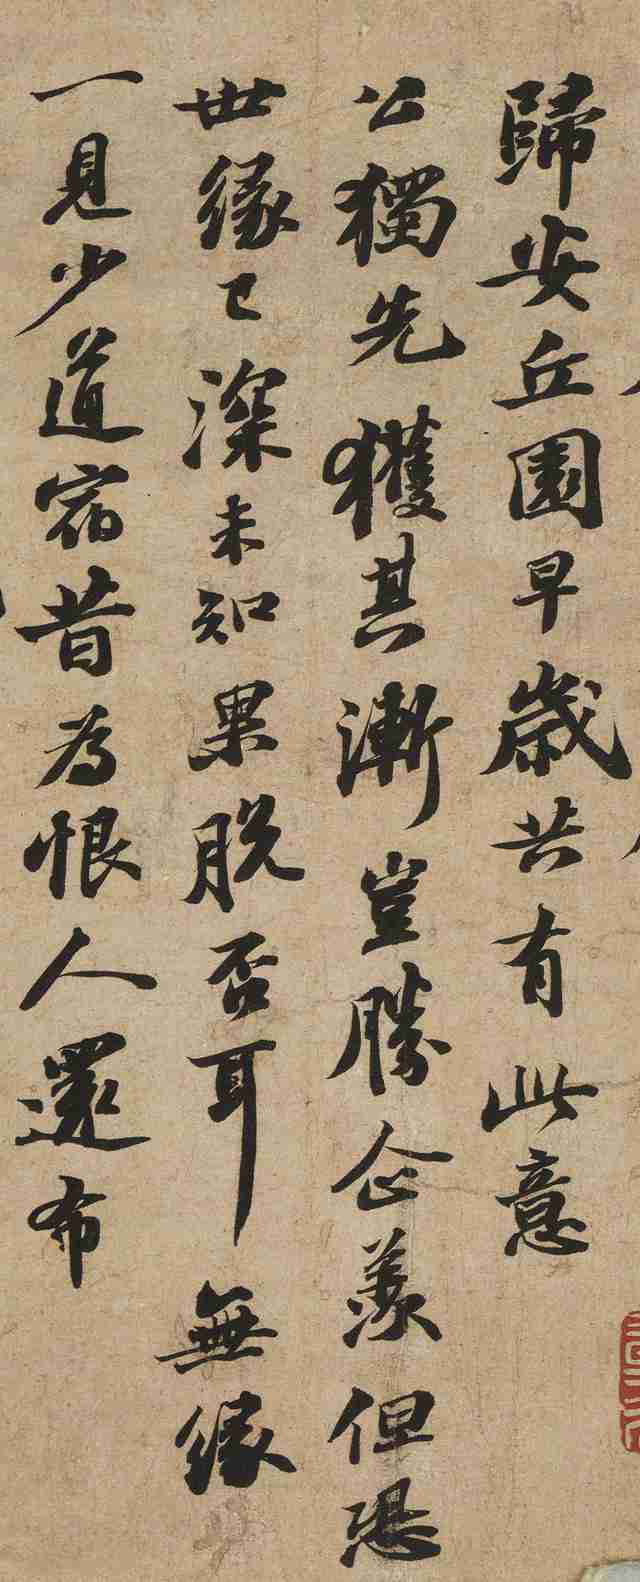 歸安丘園早歲共有此意
公獨先獲其漸豈勝企羨但恐
世緣已深未知果脫否耳無緣
一見少道宿昔為恨人還布